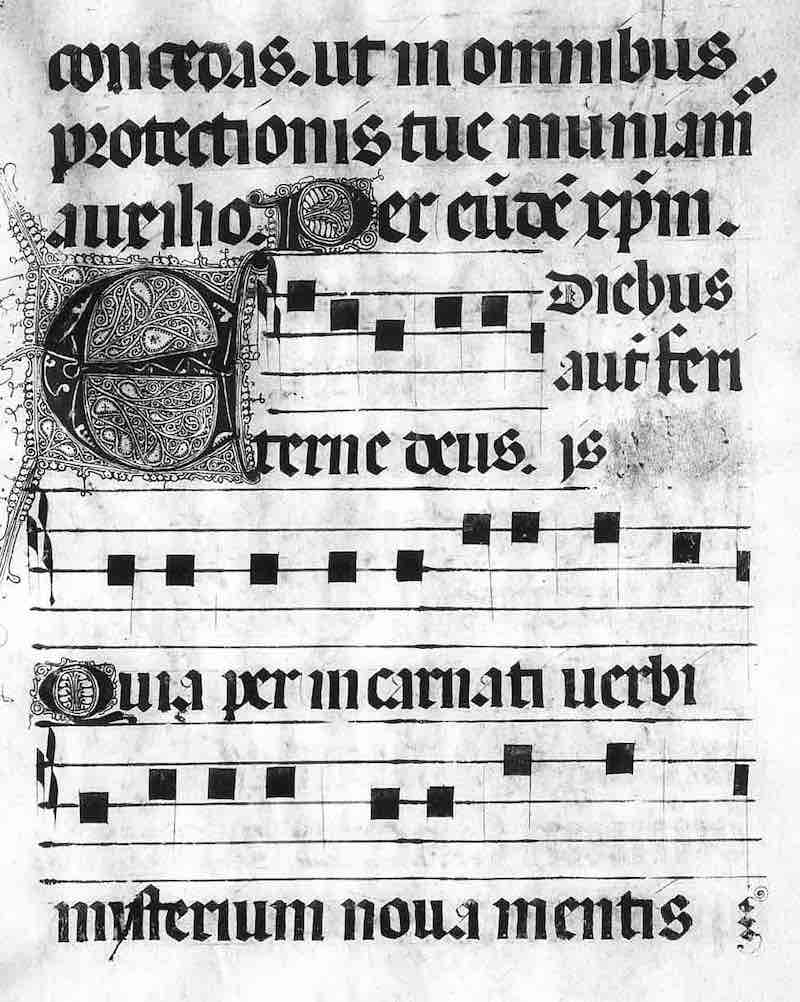 concedas. ut in omnibus
protectionis tue muniam̄
auxilio. Per eūdē xp̄m.
Diebus
aut̄ feri
Eterne deus. js
Quia per incarnati uerbi
mysterium noua mentis